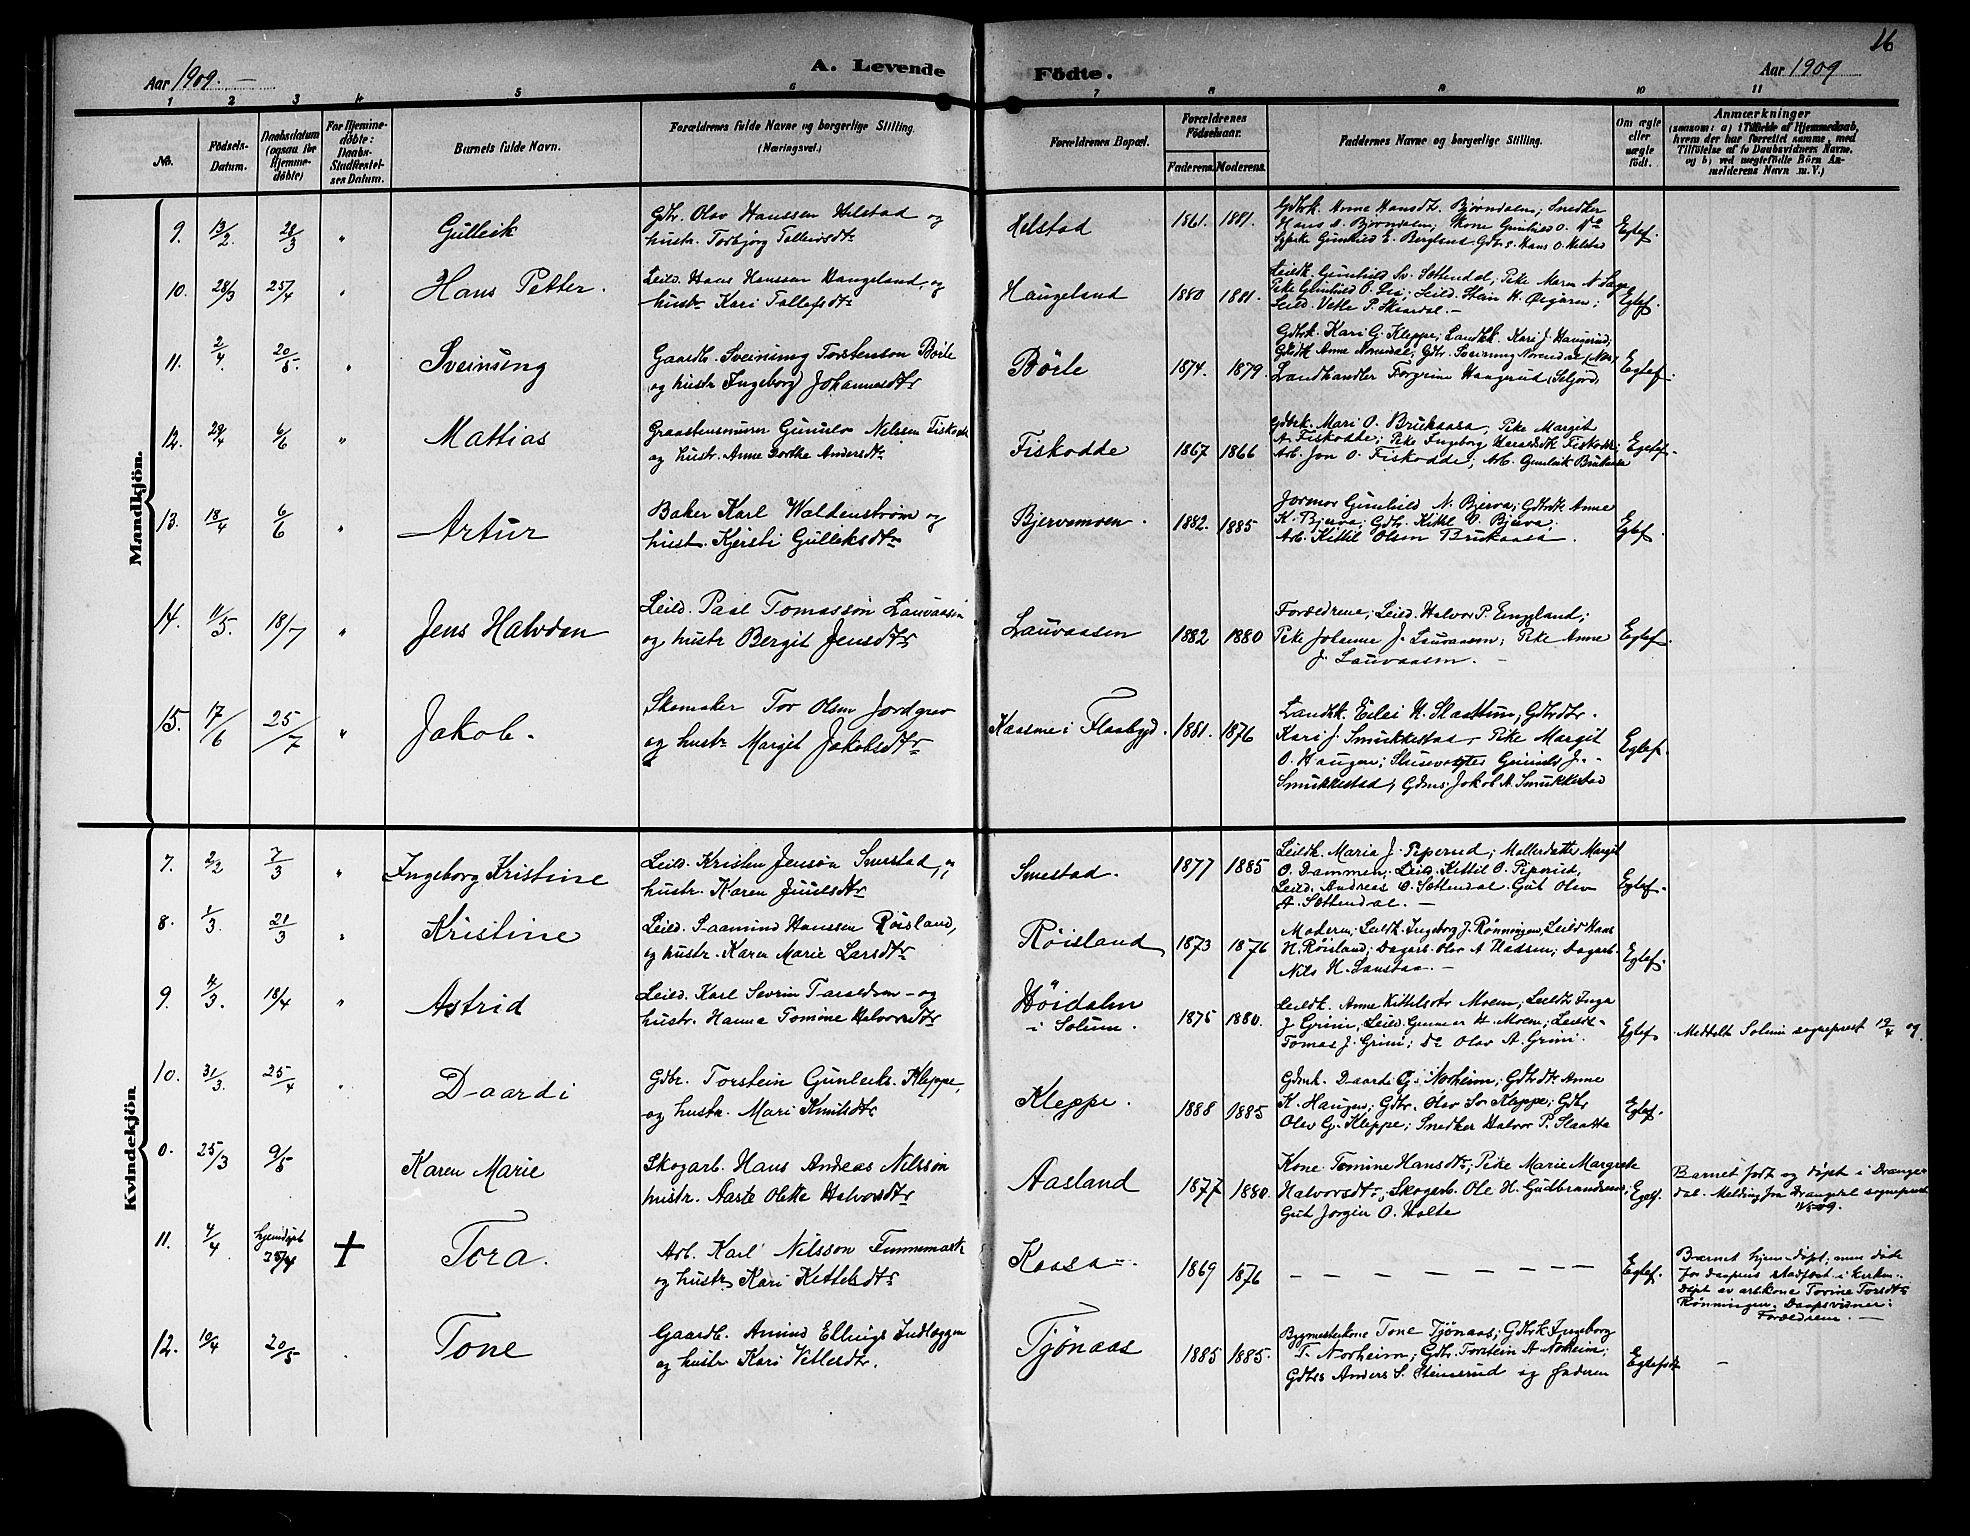 16
Aar 1909. —
A. Levende
Födte.
Aar 1909
1 2 3 4 5 6 7 8 9 10 11
No.
Födsels-Datum.
Daabsdatum (ogsaa for Hjemme-döbte)
For Hjemme-döbte: Daabs-Stadfæstelses Datum.
Barnets fulde Navn.
Forældrenes fulde Navne og borgerlige Stilling.
(Næringsvei.)
Forældrenes Bopæl.
Forældrenes Födselsaar.
Faderens. Moderens.
Faddernes Navne og borgerlige Stilling.
Om ægte eller uægte födt.
Anmærkninger
(saasom: a) i Tilfælde af Hjemmedaab,
hvem der har forrettet samme, med
Tilföielse af to Daabsvidners Navne,
og b) ved uegtefödte Börn An-
melderens Navn m. V.)
Mandkjön.
9. 13/2. 28/3 " Gulleik
Gdbr. Olav Hanssen Helstad og
hustr. Torbjørg Tallevsdtr
Helstad 1861. 1881.
Gdbrk. Anne Hansdt. Bjørndalen; Snedker
Hans A. Bjørndalen; Kone Gunhild O. Do
Sypike Gunhild E. Bergland Gdbrs. Hans O. Helstad
Egtef.
10. 28/3 25/4 " Hans Petter.
Leild. Hans Hanssen Haugeland, og
hustr. Kari Tallefsdtr
Haugeland 1880 1881.
Leildk. Gunhild Sv. Sættendal; Pike Maren N.
Pike Gunhild O. Lia; Leild. Stein H. Øigaren;
Leild. Vetle P. Skaardal. —
Egtef.
11. 2/4. 20/5. " Sveinung
Gaardb. Sveinung Torstenson Börte
og hustr Ingeborg Johannesdtr
Börte 1874. 1879.
Gdbrk. Kari G. Kleppe; Landhk. Kari J. Haugerud;
Anne Norendal; Gdbr. Sveinung Norendal (Mo)
Landhandler Torgrim Haugerud (Seljord)
Egtef.
12. 29/4 6/6 " Mattias
Graastensmurer Gunulv Nilssen Fiskodde
og hustr. Anne Dorthe Andersdtr
Fiskodde 1867 1866
Gdbrk. Mari O. Bruksaas, Pike Margit
A. Fiskodde; Pike Ingeborg Haraldsdtr Fiskodde;
Arb. Jon O. Fiskodde; Arb. Gunleik Bruksaas
Egtef.
13. 18/4 6/6 " Artur
Baker Karl Waldenstrøm og
hust. Kjersti Gulleksdtr
Bjervamoen. 1882. 1885
Jormor Gunhild N. Bjerva; Gdbrdtr Anne
K. Bjerva; Gdbr. Kittil O. Bjerva;
Arb. Kittil Olsen Bruksaas.
Egtef.
14. 11/5. 18/7 " Jens Halvdan
Leild. Paal Tomasson Lauvaasen
og hustr Bergit Jensdtr
Lauvaasen 1882 1880
Forældrene; Leild. Halvor P. Eingland;
Pike Johanne J. Lauvaasen; Pike Anne
J. Lauvaasen. —
Egtef.
15. 17/6 25/7 " Jakob.
Skomaker Tor Olsen Jordgrav
og hustr Margit Jakobsdtr
Kaasene i Flaabygd. 1881. 1876
Landhk. Eilei H. Slaattun; Gdbrdtr.
Kari J. Smukkestad; Pike Margit
O. Haugen; Slusevogter J.
Smukkestad; Gdms. Jakob A. Smukkestad
Egtef.
Kvindekjön
7. 2/2 7/3 " Ingeborg Kristine
Leild. Kristen Jensøn Smestad, og
hustr. Karen Juulsdtr
Smestad. 1877 1885
Leildk. Maria J. Piperud; Møllerdatter Margit
O. Dammen; Leild. Kettil O. Piperud;
Leild. Andreas O. Sættendal. Gut Olav
A. Sættendal. —
Egtef.
8. 1/3. 21/3 " Kristine
Leild. Saamund Hanssen Røisland,
og hustr. Karen Marie Larsdtr
Røisland 1873 1876
Moderen; Leildk. Ingeborg J. Rønningen; Leild Hans
H. Røisland; Dagarb. Olav A Madsen; Dagarb.
Nils H. —
Egtef.
9. 4/3. 18/4 " Astrid
Leild. Karl Sevrin Taraldsen — og
hustr. Hanna Tomine Halvorsdtr
Høidalen
i Solum. 1875 1880.
Leildk. Anne Kittelsdtr Moen; Leildk Inga
J Grini; Leild Gunnar H. Moen; Leild.
Tomas J. Grini; Do Olav A. Grini.
Egtef.
Meddelt Solum sogneprest 19/4 09.
10. 31/3. 25/4 " Daardi
Gdbr. Torstein Gunleiks. Kleppe,
og hustr. Mari Knutsdtr
Kleppe. 1888 1885
Gdmk. Daardi G. Norheim; Gdbrdtr Anne
K. Haugen; Gdbr. Olav Sv. Kleppe; Gdbr
Olav G. Kleppe; Snedker Halvor P. Slaatta
Egtef.
0. 25/3 9/5 Karen Marie
Skogarb. Hans Andeas Nilssøn
hustr. Aaste Olette Halvorsdtr
Aasland 1877 1880.
Kone Tomine Hansdtr; Pike Marie Margrete
Halvorsdtr; Skogarb. Ole H. Gudbrandsen;
Gut Jørgen O. Holte
Egtf.
Barnet født og døpt i Drange
dal. Melding fra Drangedal sogneprest
11/5 09.
11. 4/4 hjemdøpt + Tora.
Arb. Karl Nilsson Funnemark
og hustr Kari Kittelsdtr
Kaasa. 1869 1876 — — — — — — — —
Egtef.
Barnet hjemdøpt; men døde
før daapens stadfæst. i kirken.
Døpt av arb.kone Torine Torsdtr
Rønningen. Daapsvidner:
Forældrene. —
12. 10/4 20/5 . Tone
Gaardb. Amund Ellings. Indlæggen
og hustr Kari Vetlesdtr.
Tjönaas 1885 1885.
Bygmesterkone Tone Tjönaas; Gdbrk Ingeborg
T. Norheim; Gdbr. Torstein A Norheim;
Gdbrs Anders S. Stenserud og faderen
Egtefødt —